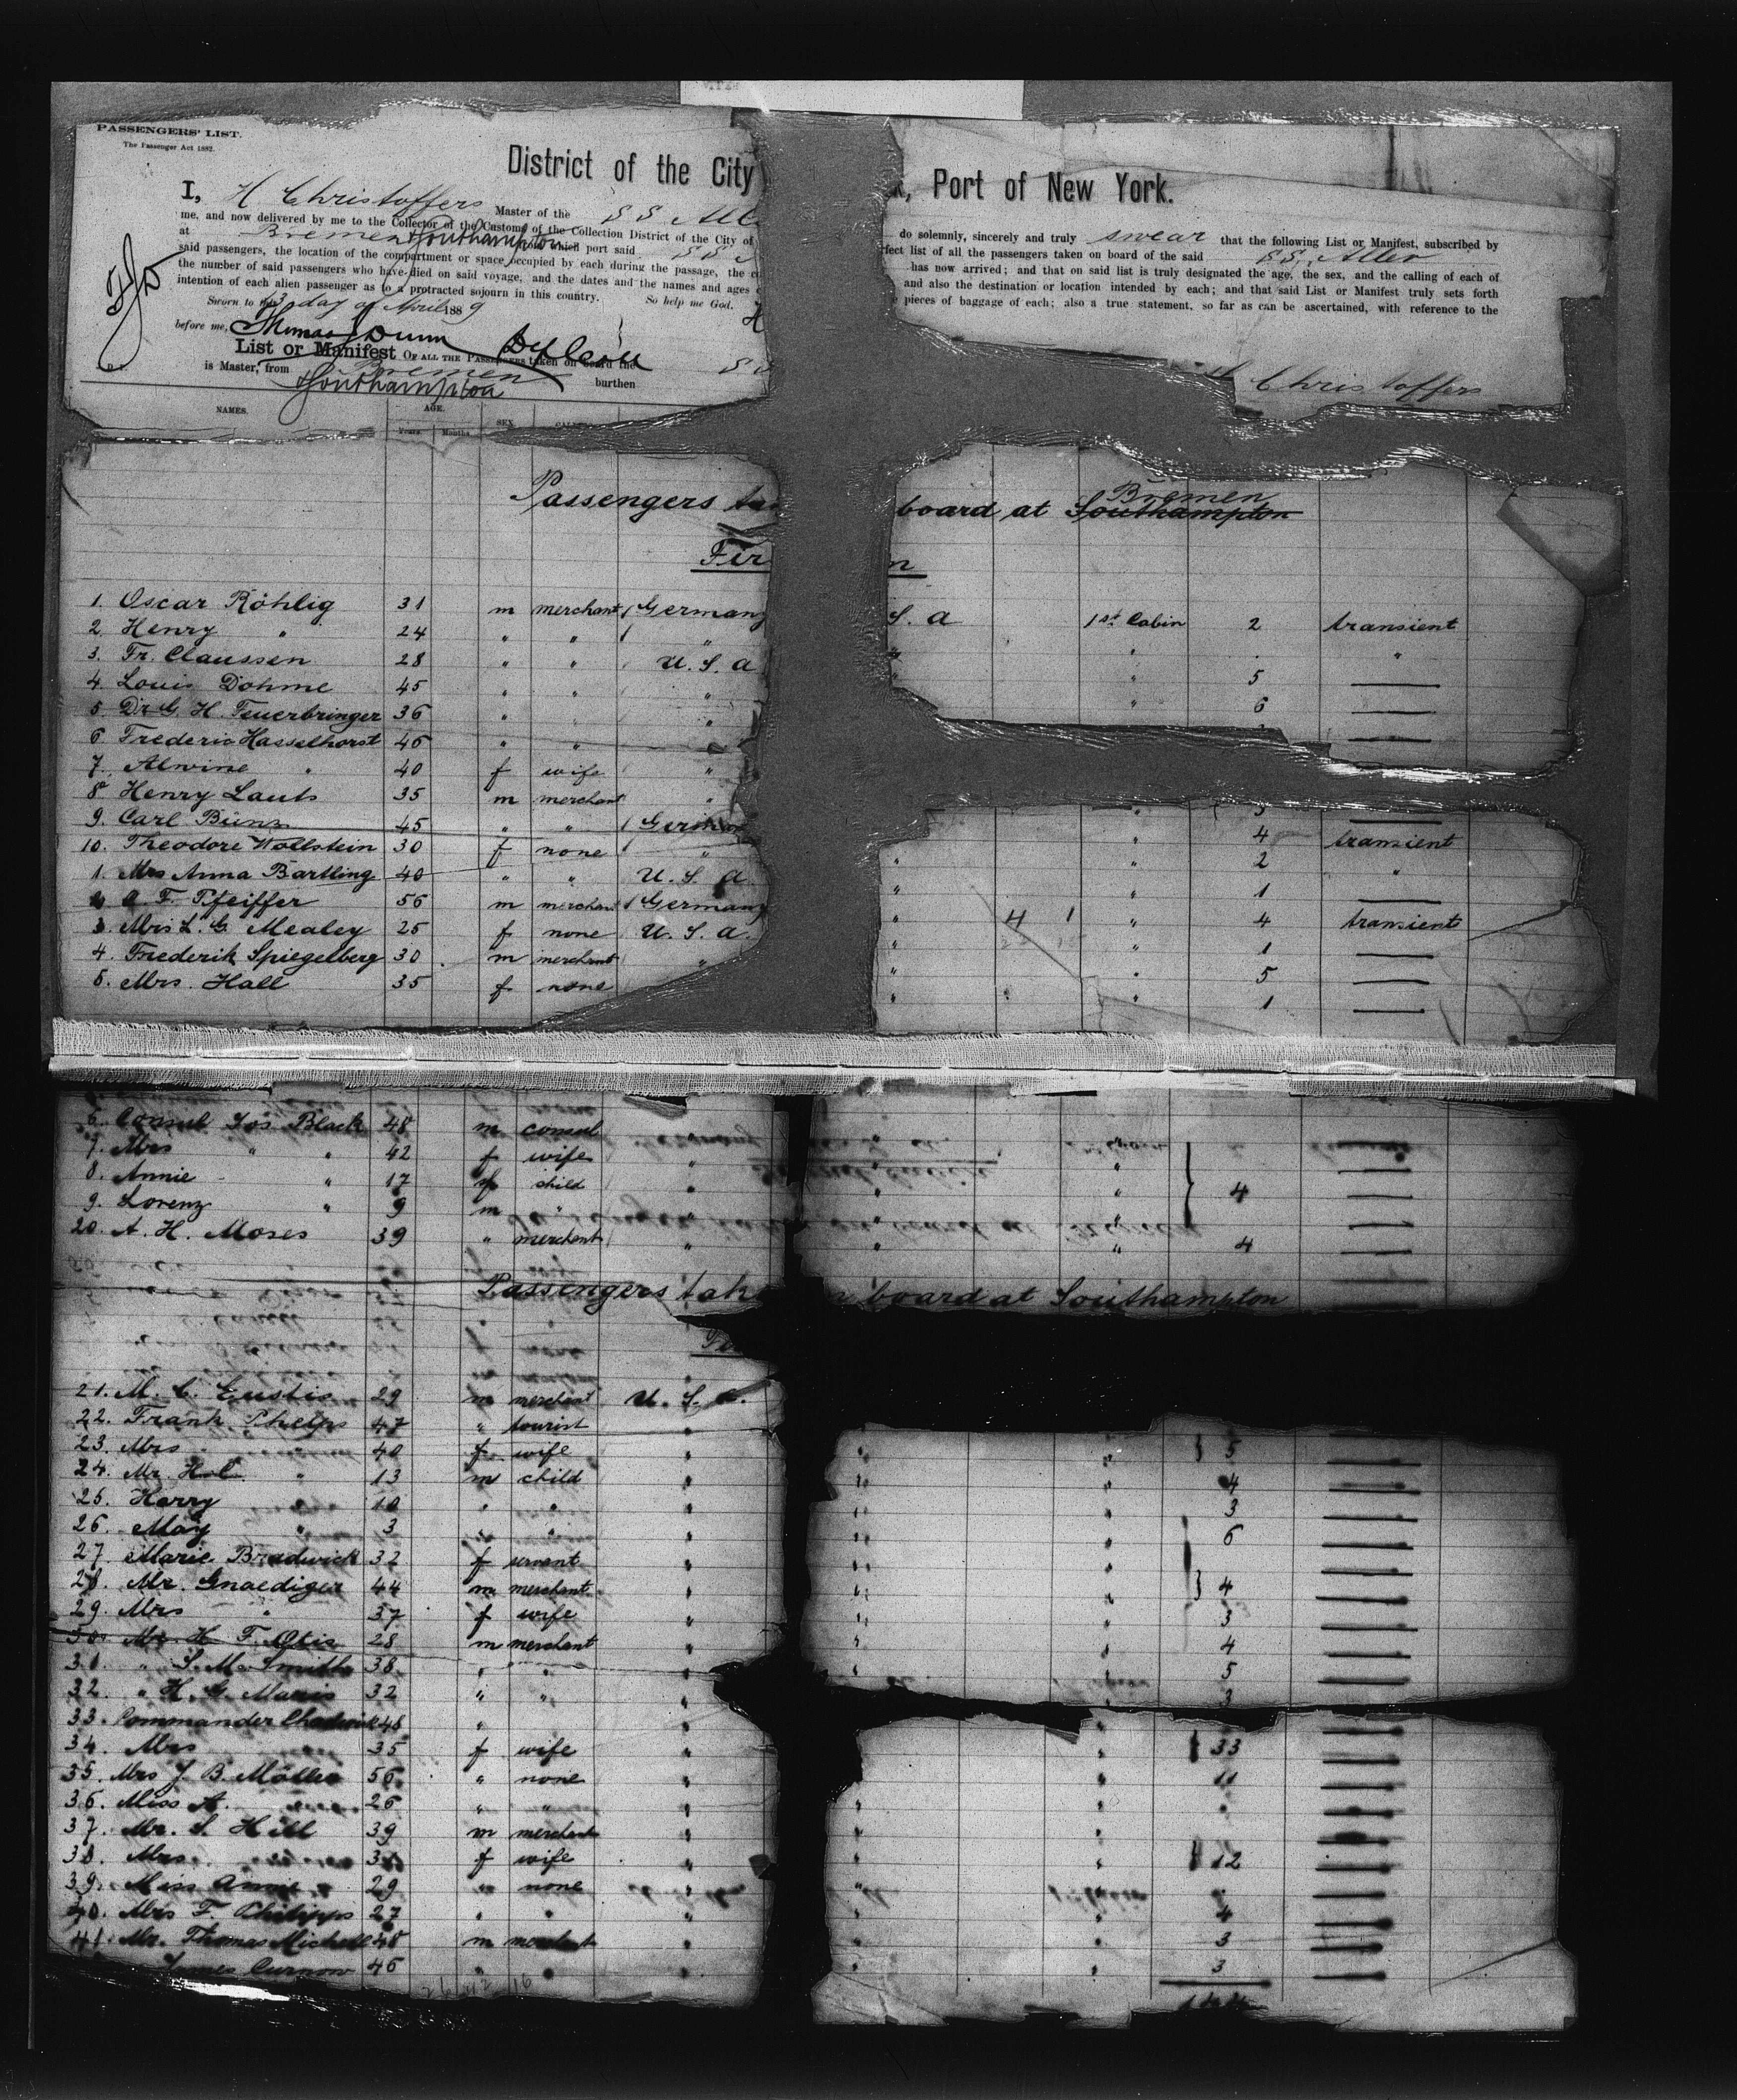 PASSENGERS' LIST.
The Passenger Act 1882.
District of the City k, Port of New York.
I, H Christoffers Master of the S S All do solemnly, sincerely and truly swear that the following List or Manifest, subscribed by
me, and now delivered by me to the Collector of the Customs of the Collection District of the City of rfect list of all the passengers taken on board of the said S.S. Aller
at Bremen & Southampton from which port said S S has now arrived; and that on said list is truly designated the age, the sex, and the calling of each of
said passengers, the location of the compartment or space occupied by each during the passage, the c and also the destination or location intended by each; and that said List or Manifest truly sets forth
the number of said passengers who have died on said voyage, and the dates and the names and ages pieces of baggage of each; also a true statement, so far as can be ascertained, with reference to the
intention of each alien passenger as to a protracted sojourn in this country. So help me God. H Christoffers
Sworn to this 13 day of April 1889
before me, Thomas Dunn
List or Manifest OF ALL THE PASSENGERS taken on board the S S
is Master, from Bremen burthen
& Southampton
NAMES. AGE. SEX.
Years. Months.
Passengers board at Southampton Bremen
Fir n
1. Oscar Röhlig 31 m merchant Germany S. A 1st Cabin 2 transient
2. Henry " 24 " " " " " "
3. Fr. Claussen 28 " " U. S. A " " 5
4. Louis Dohme 45 " " " " 6
5. Dr G. H. Feuerbringer 36 " "
6. Frederic Hasselhorst 45 " " "
7. Alwine " 40 f wife "
8. Henry Lauts 35 m merchant " " 3
9. Carl Bünz 45 " " German " 4 transient
10. Theodore Wollstein 30 f none " " " 2 "
1. Mrs Anna Bartling 40 " " U. S. A " " 1
2. A. F. Pfeiffer 56 m merchant Germany " 4 1 " 4 transient
3. Mrs L. G. Mealey 25 f none U. S. A. " " 1
4. Frederik Spiegelberg 30 m merchant " " " 5
5. Mrs. Hall 35 f none " " 1
6. Consul Jos Black 48 m consul "
7. Mrs " " 42 f wife " " "
8. Annie " 17 f child " " " 4
9. Lorenz " 9 m " " " "
20. A. H. Moses 39 " merchant " " " 4
Passengers tak n board at Southampton
Fir
21. M. C. Eustis 29 m merchant U. S. A.
22. Frank Phelps 47 " tourist " " "
23. Mrs " 40 f wife " " " 5
24. Mr. Hal " 13 m child " " " 4
25. Harry " 10 " " " " " 3
26. May " 3 " " " " " 6
27. Marie Bradwick 32 f servant " " "
28. Mr. Gnaediger 44 m merchant " " " 4
29. Mrs " 37 f wife " " " 3
30. Mr. H. F. Otis 28 m merchant " " " 4
31. " S. M. Smith 38 " " " " " 5
32. " H. G. Maris 32 " " " " 3
33. Commander Chadwick 48 " "
34. Mrs " 35 f wife " " 33
35. Mrs J. B. Möller 56 " none " " 11
36. Miss A. " 26 " " " " "
37. Mr. S. Hill 39 m merchant " "
38. Mrs " f wife " " 12
39. Miss Annie " 29 " none " "
40. Mrs F. Philipps 27 " " " " 4
41. Mr. Thomas Michell 48 m merchant " " 3
James Curnow 46 " " " " " 3